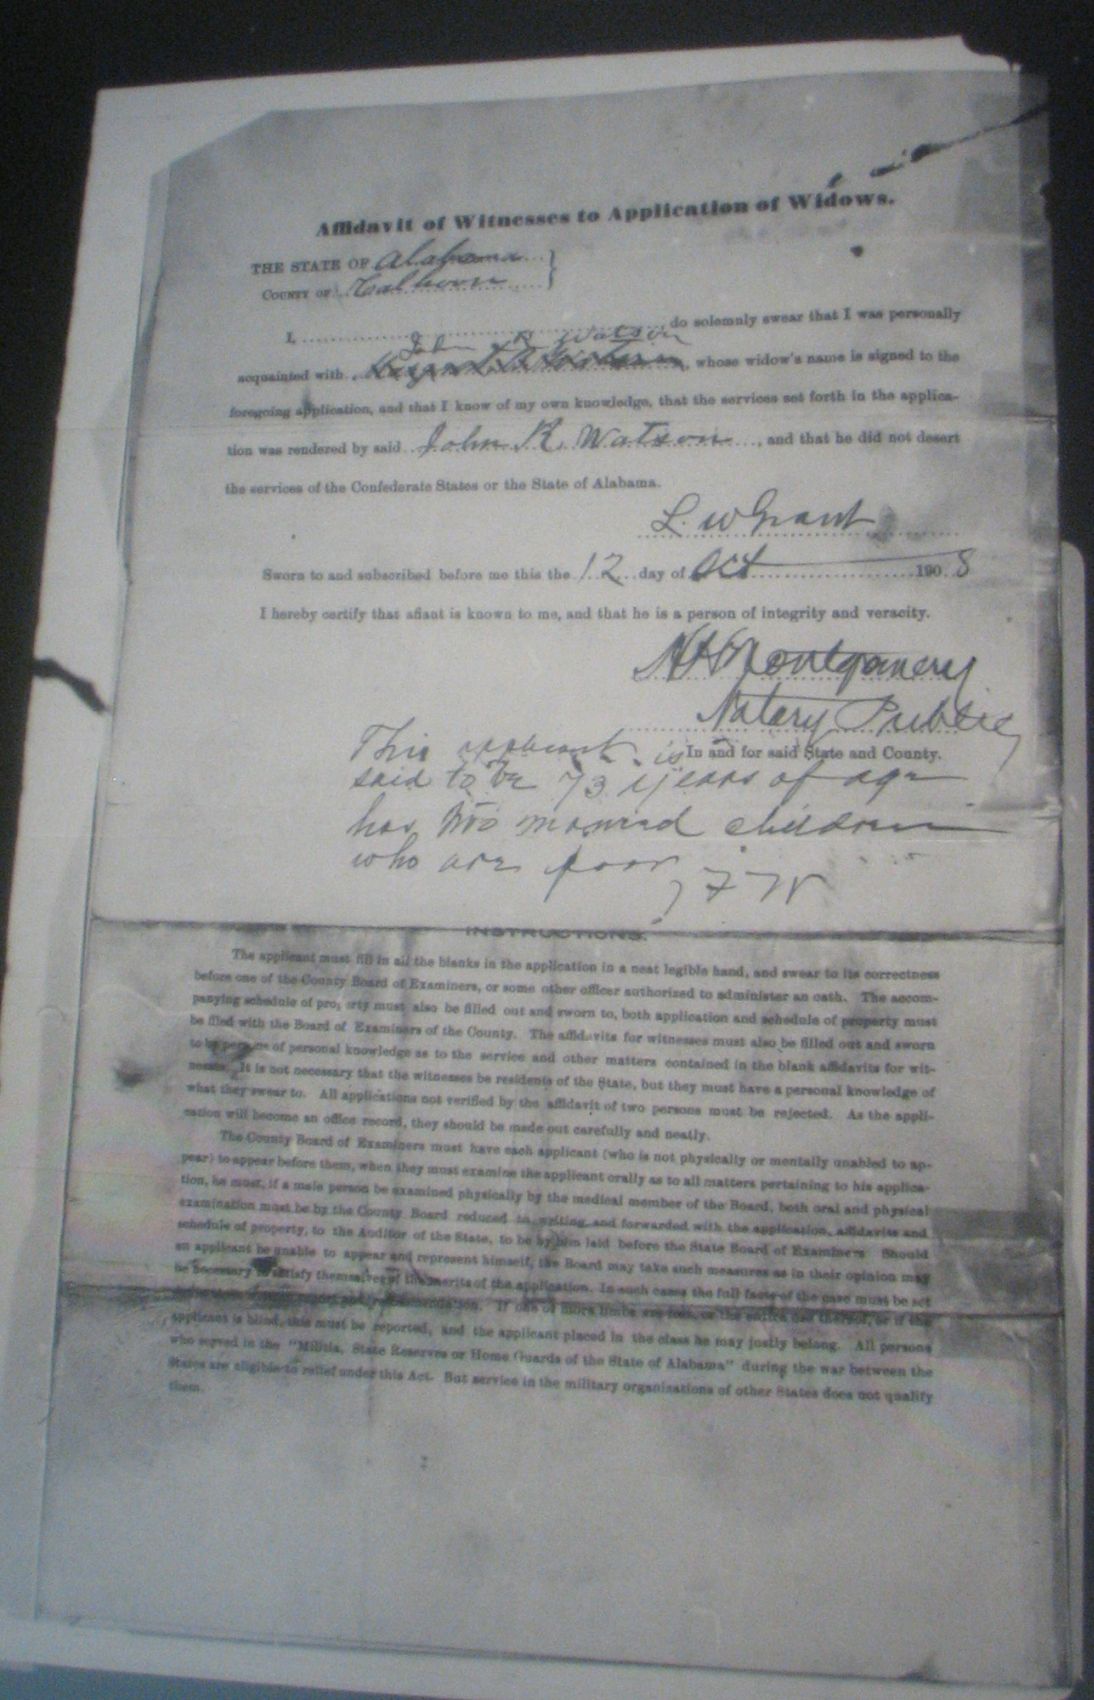 Affidavit of Witnesses to Application of Widows.
THE STATE OF Alabama
COUNTY OF Calhoun
I, do solemnly swear that I was personally
John R Watson
acquainted with , whose widow's name is signed to the
foregoing application, and that I know of my own knowledge, that the services set forth in the applica-
tion was rendered by said John R. Watson, and that he did not desert
the services of the Confederate States or the State of Alabama.
L. W Grant
Sworn to and subscribed before me this the 12 day of Oct 1908
I hereby certify that afiant is known to me, and that he is a person of integrity and veracity.
Montgomery
Notary Public
In and for said State and County.
This applicant is
said to be 73 years of age
has two married children
who are poor
INSTRUCTIONS.
The applicant must fill in all the blanks in the application in a neat legible hand, and swear to its correctness
before one of the County Board of Examiners, or some other officer authorized to administer an oath. The accom-
panying schedule of property must also be filled out and sworn to, both application and schedule of property must
be filed with the Board of Examiners of the County. The affidavits for witnesses must also be filled out and sworn
to by persons of personal knowledge as to the service and other matters contained in the blank affidavits for wit-
nesses. It is not necessary that the witnesses be residents of the State, but they must have a personal knowledge of
what they swear to. All applications not verified by the affidavit of two persons must be rejected. As the appli-
cation will become an office record, they should be made out carefully and neatly.
The County Board of Examiners must have each applicant (who is not physically or mentally unabled to ap-
pear) to appear before them, when they must examine the applicant orally as to all matters pertaining to his applica-
tion, he must, if a male person be examined physically by the medical member of the Board, both oral and physical
examination must be by the County Board reduced to writing and forwarded with the application, affidavits and
schedule of property, to the Auditor of the State, to be by him laid before the State Board of Examiners Should
an applicant be unable to appear and represent himself, the Board may take such measures as in their opinion may
be necessary to satisfy themselves of the merits of the application. In such cases the full facts of the case must be set
recommendation. If one or more limbs are lost, or the entire use thereof, or if the
applicant is blind, this must be reported, and the applicant placed in the class he may justly belong. All persons
who served in the "Militia, State Reserves or Home Guards of the State of Alabama" during the war between the
States are eligible to relief under this Act. But service in the military organizations of other States does not qualify
them.